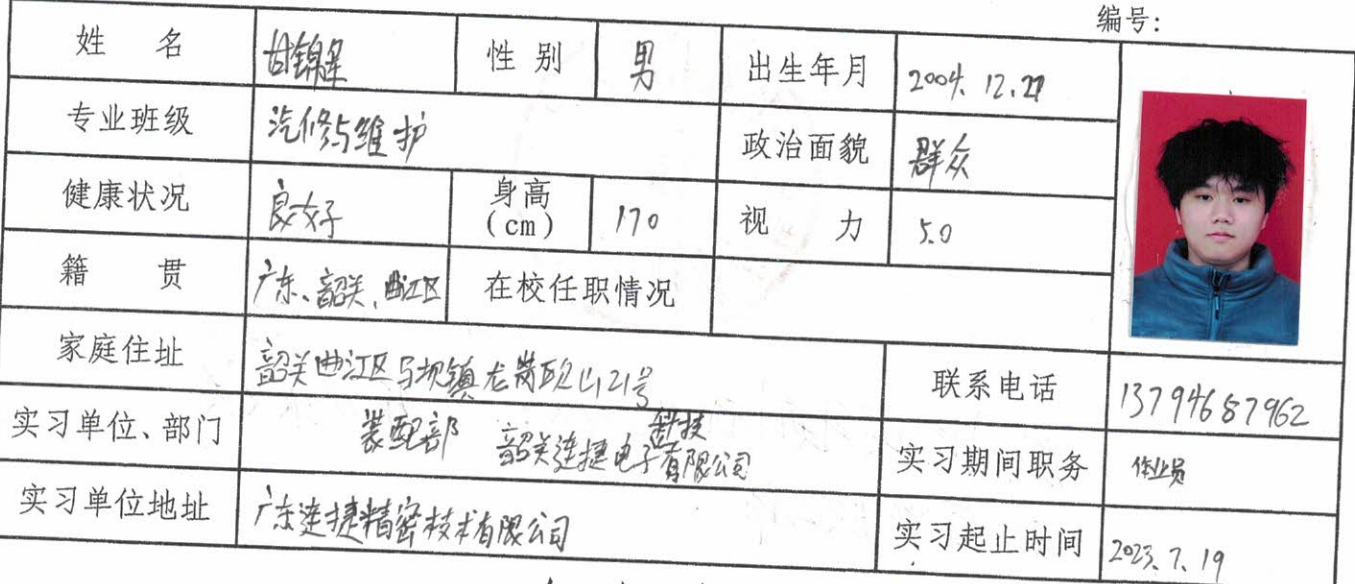 编号:
姓 名 甘锦星 性 别 男 出生年月 2004.12.27
专业班级 汽修与维护 政治面貌 群众
健康状况 良好 身高(cm) 170 视 力 5.0
籍 贯 广东、韶关、曲江区 在校任职情况
家庭住址 韶关曲江区马坝镇龙岗 山21号 联系电话 13794687962
实习单位、部门 装配部 韶关连捷电子科技有限公司 实习期间职务 作业员
实习单位地址 广东连捷精密技术有限公司 实习起止时间 2023.7.19